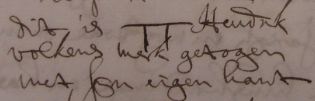 dit is Hendrk
volkens merk getogen
met syn eigen hant